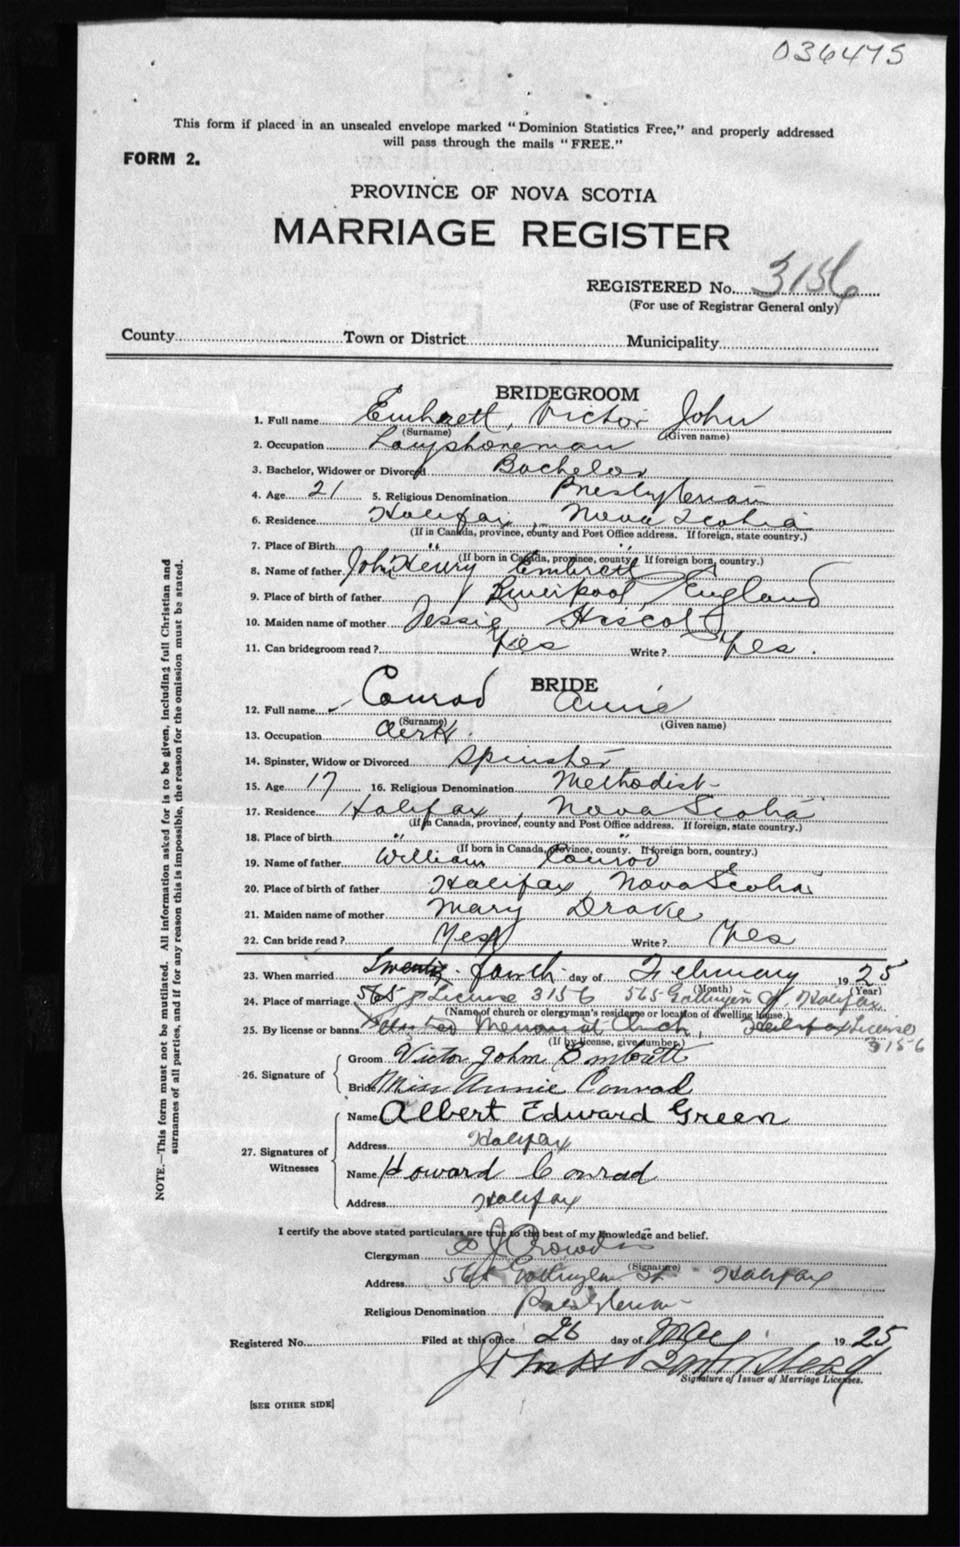 036475
This form if placed in an unsealed envelope marked "Dominion Statistics Free," and properly addressed
will pass through the mails "FREE."
FORM 2.
PROVINCE OF NOVA SCOTIA
MARRIAGE REGISTER
REGISTERED No. 3156
(For use of Registrar General only)
County Town or District Municipality
BRIDEGROOM
1. Full name Victor John
(Surname) (Given name)
2. Occupation Longshoreman
3. Bachelor, Widower or Divorced Bachelor
4. Age 21 5. Religious Denomination Presbyterian
6. Residence Halifax, Nova Scotia
(If in Canada, province, county and Post Office address. If foreign, state country.)
7. Place of Birth " "
(If born in Canada, province, county. If foreign born, country.)
8. Name of father John Henry
9. Place of birth of father Liverpool, England
10. Maiden name of mother Jessie
11. Can bridegroom read? Yes Write? Yes.
BRIDE
12. Full name Conrad Annie
(Surname) (Given name)
13. Occupation Clerk.
14. Spinster, Widow or Divorced Spinster
15. Age 17 16. Religious Denomination Methodist
17. Residence Halifax, Nova Scotia
(If in Canada, province, county and Post Office address. If foreign, state country.)
18. Place of birth " "
(If born in Canada, province, county. If foreign born, country.)
19. Name of father William Conrad
20. Place of birth of father Halifax, Nova Scotia
21. Maiden name of mother Mary Drake
22. Can bride read? Yes Write? Yes
23. When married fourth day of February 1925
(Month) (Year)
24. Place of marriage 565 License 3156 565 Gottingen St. Halifax
(Name of church or clergyman's residence or location of dwelling house.)
25. By license or banns Memorial Church, Halifax License
(If by license, give number.) 3156
26. Signature of
Groom Victor John
Bride Miss Annie Conrad
27. Signatures of Witnesses
Name Albert Edward Green
Address Halifax
Name Howard Conrad
Address Halifax
I certify the above stated particulars are true to the best of my knowledge and belief.
Clergyman
(Signature)
Address Gottingen St Halifax
Religious Denomination Presbyterian
Registered No. Filed at this office 26 day of 1925
Signature of Issuer of Marriage Licenses.
[SEE OTHER SIDE]
NOTE.—This form must not be mutilated. All information asked for is to be given, including full Christian and
surnames of all parties, and if for any reason this is impossible, the reason for the omission must be stated.